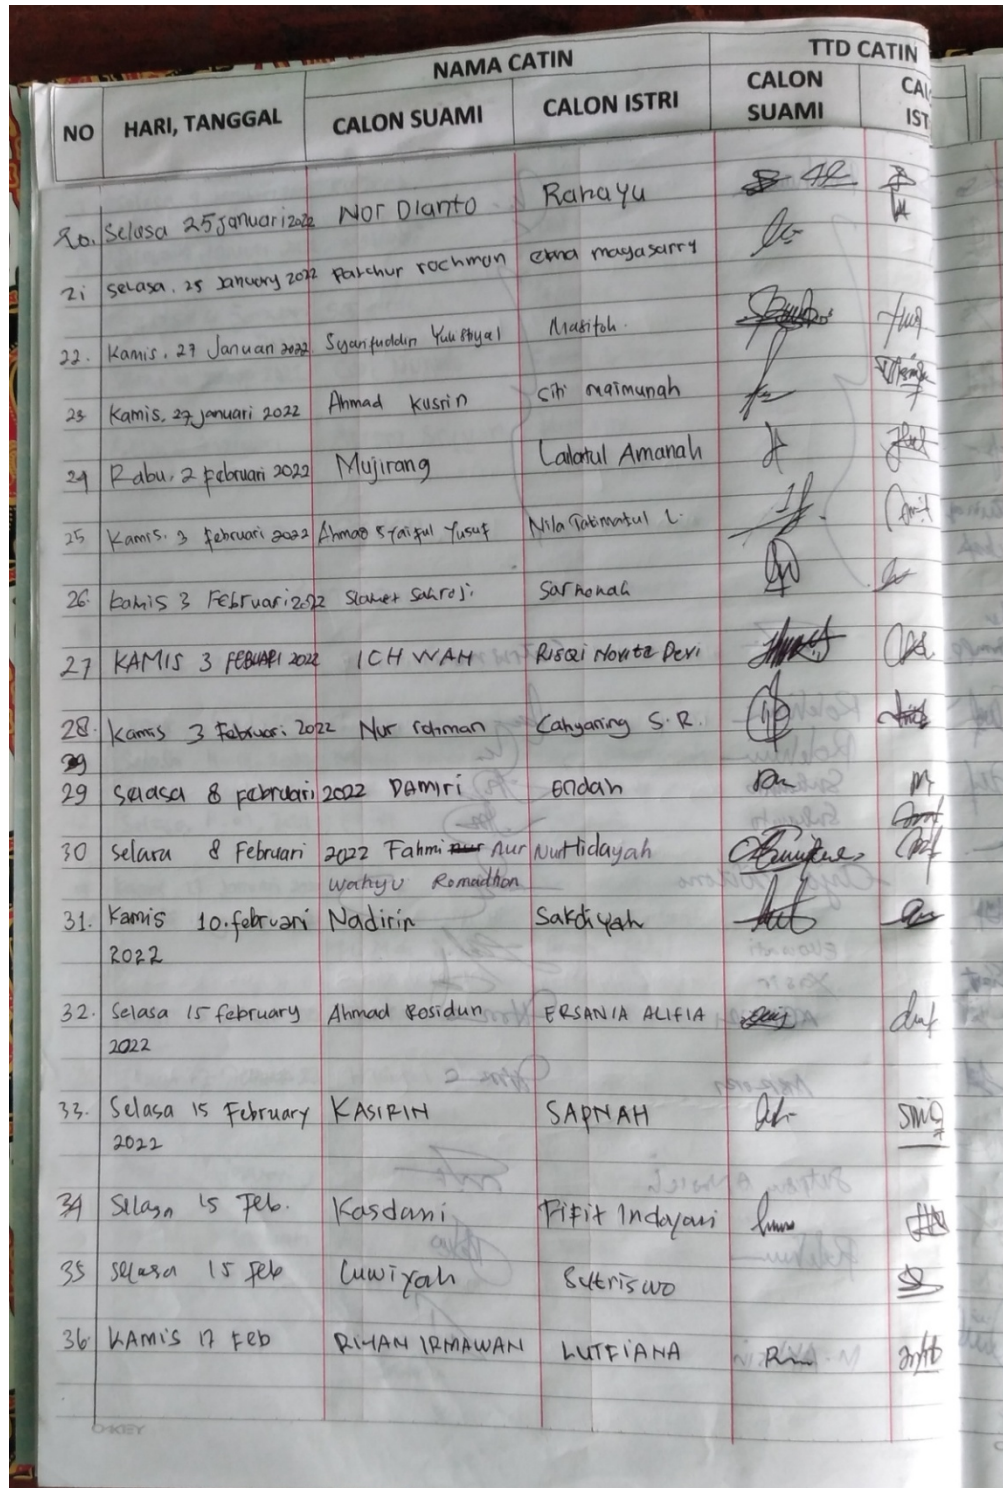 NAMA CATIN TTD CATIN
NO HARI, TANGGAL CALON SUAMI CALON ISTRI CALON SUAMI
20. Selasa 25 Januari 2022 Nor Dianto Rahayu
21 Selasa, 25 January 2022 Fatchur rochman mayasarry
22. Kamis, 27 Januari 2022 Syarifuddin Masitoh.
23 Kamis, 27 januari 2022 Ahmad Kusrin Siti maimunah
24 Rabu, 2 februari 2022 Mujirang Lailatul Amanah
25 Kamis, 3 februari 2022 Ahmad Syaiful Yusuf Nila L.
26. kamis 3 Februari 2022 Slamet Sahroji Sarhonah
27 KAMIS 3 FEBUARI 2022 ICHWAH Risqi Novita Devi
28. Kamis 3 Februari 2022 Nur rohman Cahyaning S.R.
29 selasa 8 februari 2022 DAMIRI Endah
30 selasa 8 Februari 2022 Fahmi Nur NurHidayah
Wahyu Romadhon
31. Kamis 10.februari Nadirin Sakdiyah
2022
32. Selasa 15 february Ahmad Rosidun ERSANIA ALIFIA
2022
33. Selasa 15 February KASIRIN SAPNAH
2022
34 Selasa 15 Feb. Kasdani Fifit Indayani
35 Selasa 15 Feb Luwiyah Sutriswo
36. KAMIS 17 Feb RIYAN IRMAWAN LUTFIANA